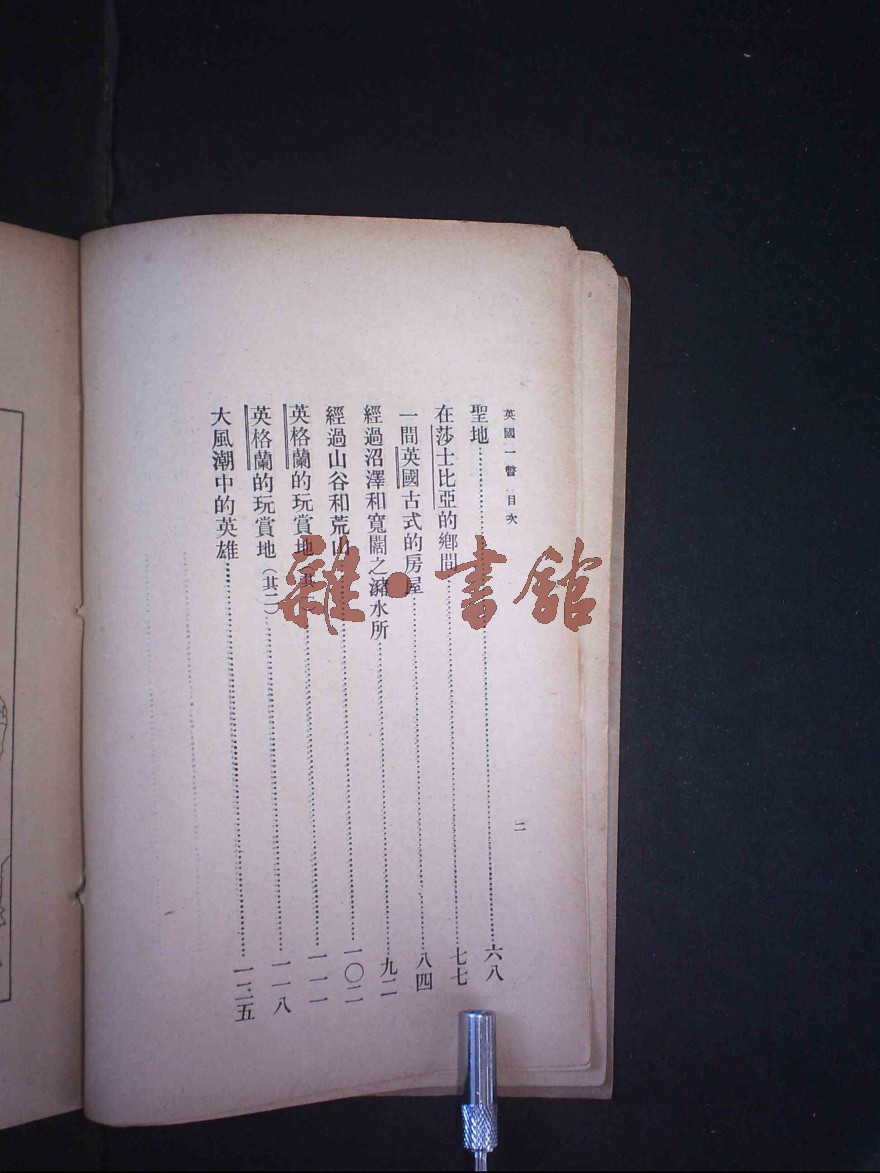 英國一瞥 目次
二
聖地……六八
在莎士比亞的鄉間……七七
一間英國古式的房屋……八四
經過沼澤和寬闊之瀦水所……九二
經過山谷和荒山……一〇二
英格蘭的玩賞地(其一)……一一一
英格蘭的玩賞地(其二)……一一八
大風潮中的英雄……一二五
雜·書館